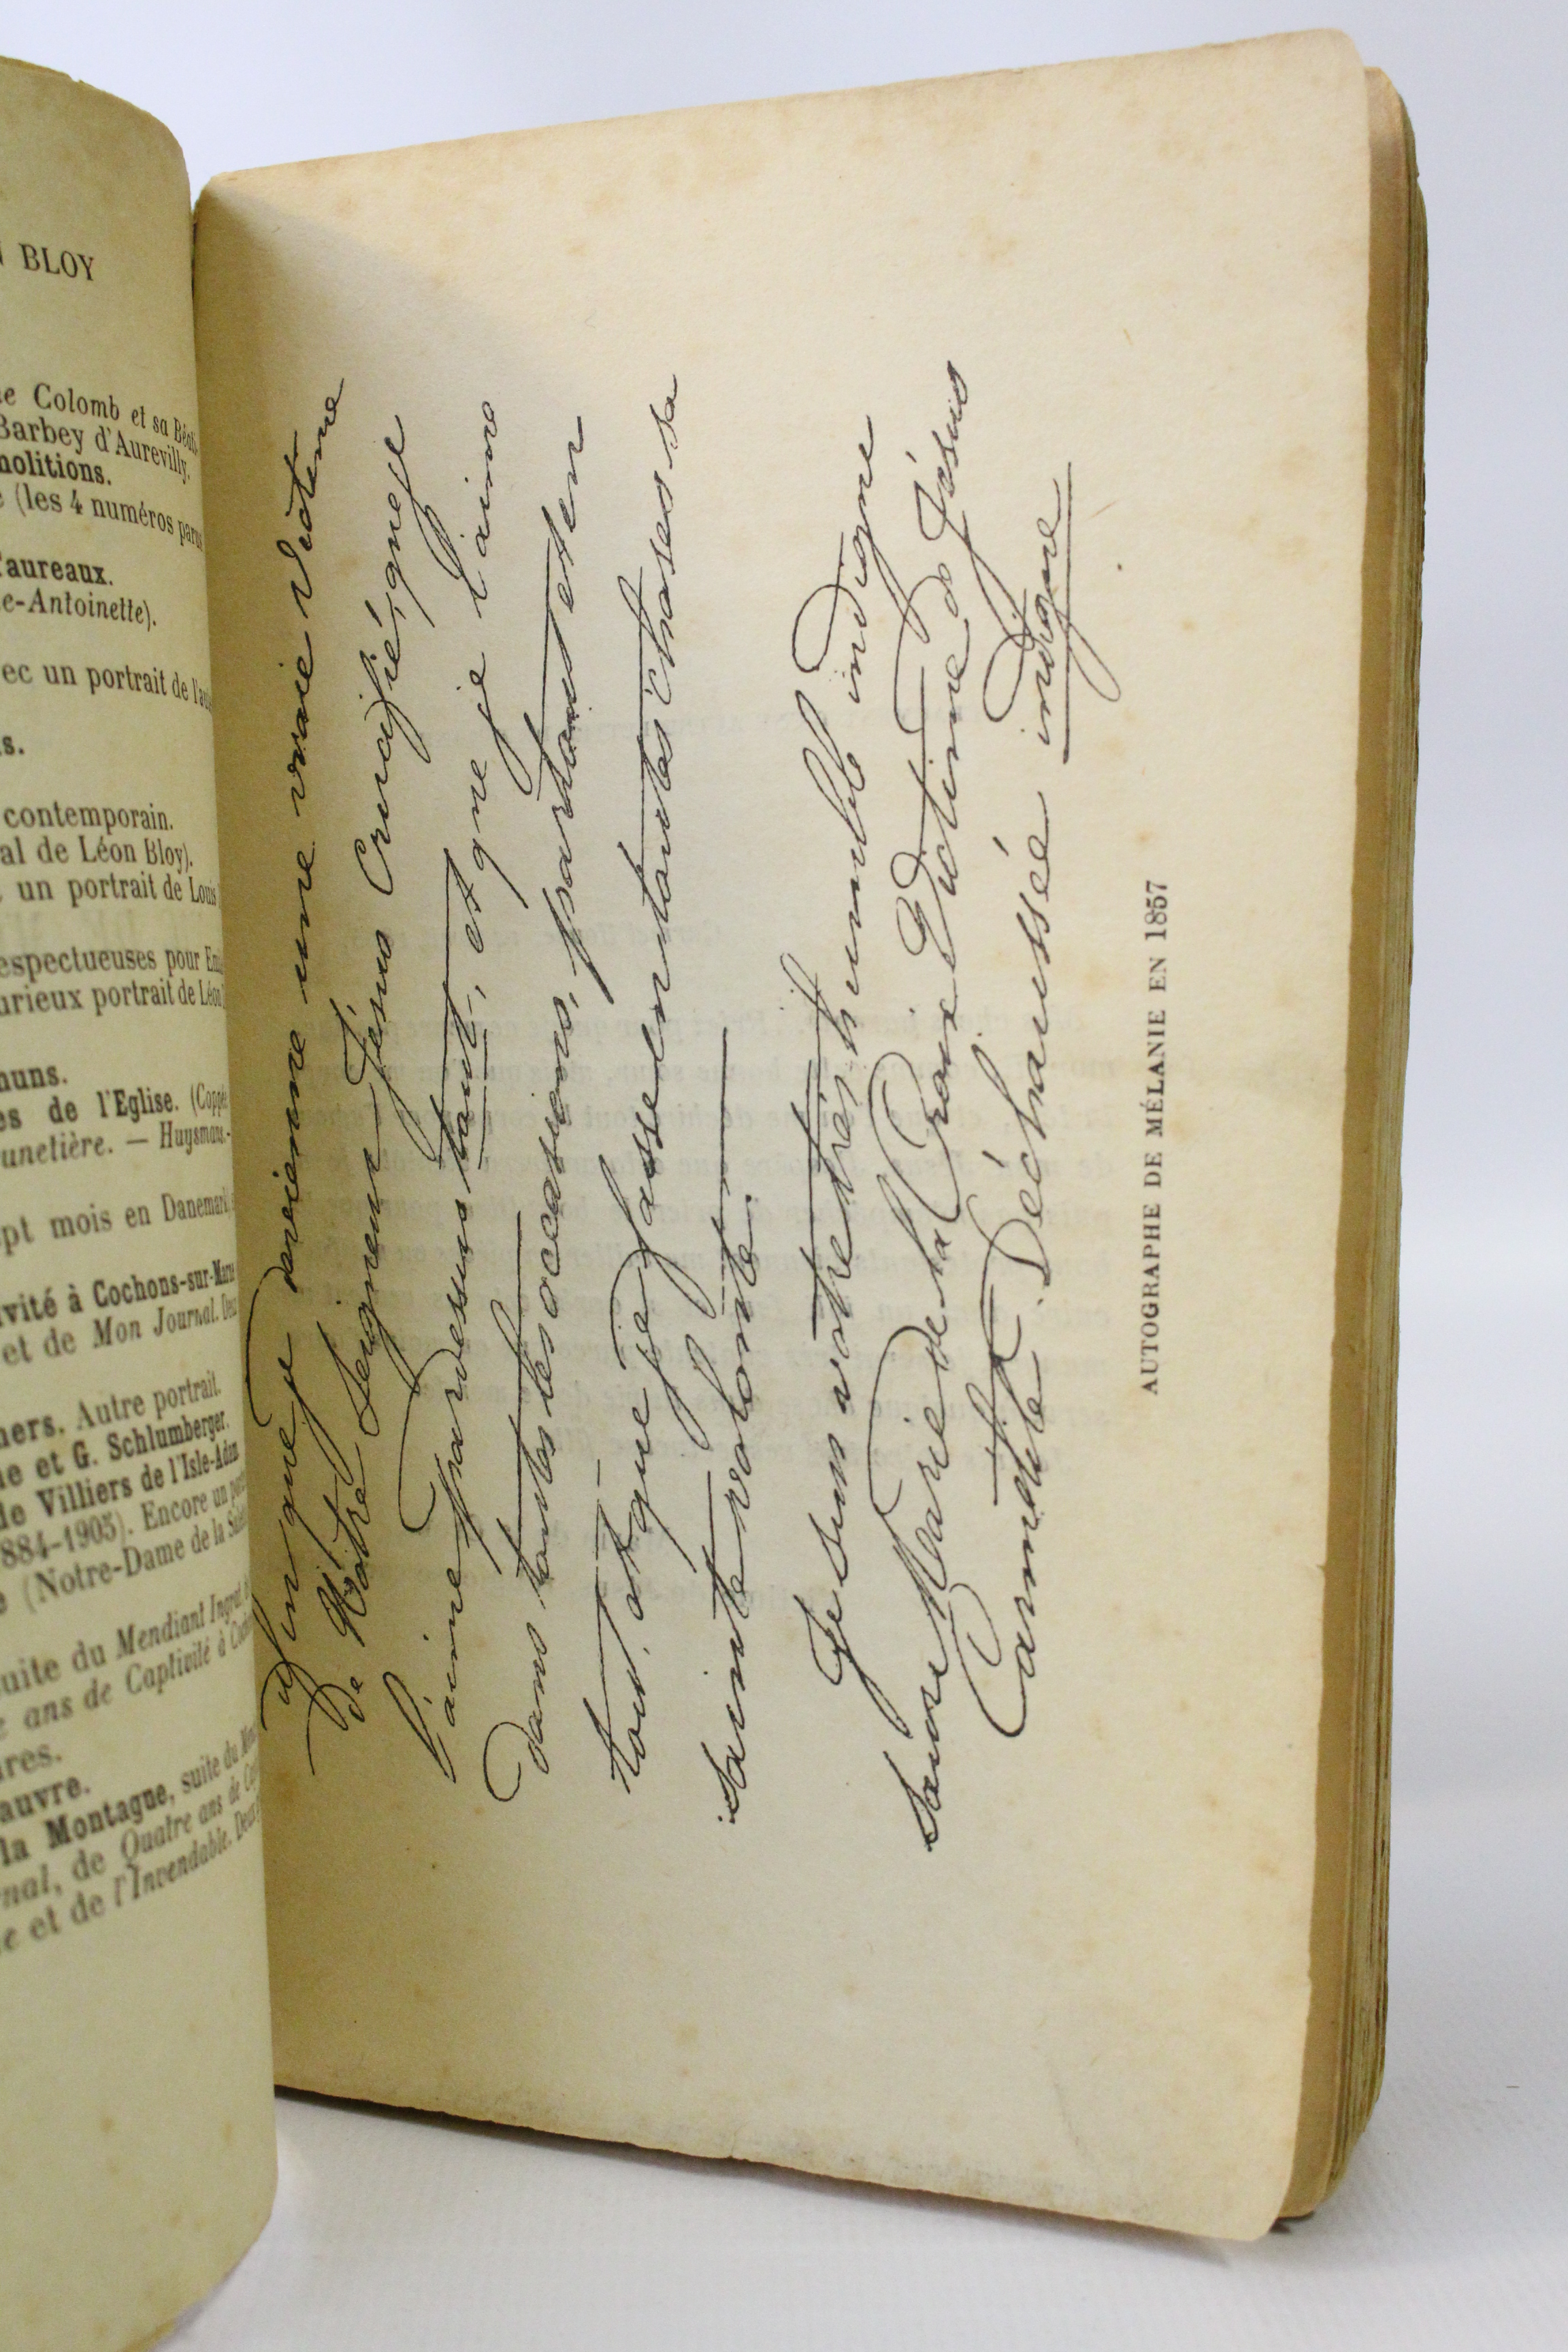 N BLOY
e Colomb et sa Béati
Barbey d'Aurevilly.
molitions.
e (les 4 numéros parus
Taureaux.
e-Antoinette).
ec un portrait de l'au
s.
contemporain.
al de Léon Bloy).
un portrait de Louis
espectueuses pour
urieux portrait de Léon
muns.
es de l'Eglise. (Coppée
unetière. — Huysmans.-
pt mois en Danemark
ivité à Cochons-sur-Marne
et de Mon Journal. Deux
hers. Autre portrait.
ne et G. Schlumberger.
de Villiers de l'Isle-Adam
884-1905). Encore un
e (Notre-Dame de la
uite du Mendiant Ingrat
e ans de Captivité à
res.
auvre.
la Montagne, suite du
rnal, de Quatre ans de
e et de l'Invendable. Deux
afin que je devienne une vraie victime
de Nôtre Seigneur Jésus Crucifié, que je
l'aime pardessus tout, et que je l'aime
dans toutes les occasions, partout et en
tout, et que je fasse en toutes choses sa
sainte volonté.
Je suis votre très humble indigne
Sœur Marie de la Croix Victime de Jésus
Carmélite Déchaussée indigne
AUTOGRAPHE DE MÉLANIE EN 1857